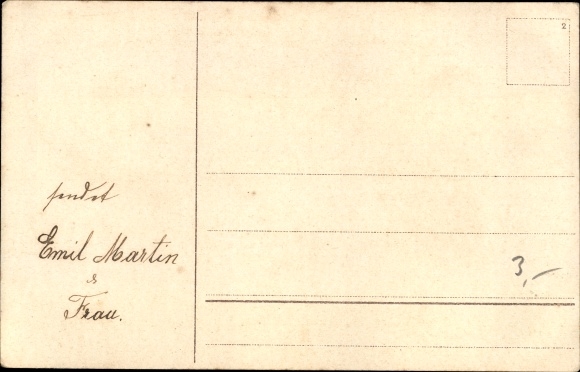 2
sendet
Emil Martin
&
Frau.
3,–